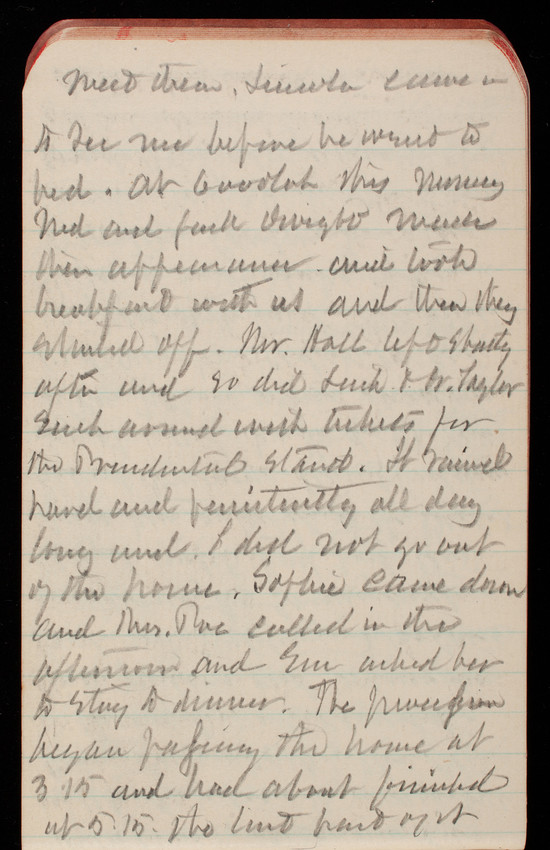 meet them. Lincoln came in
to see me before he went to
bed. At 6 o'clock this morning
Ned and Jack Dwight made
their appearance and took
breakfast with us and then they
started off. Mr. Hall left shortly
after and so did Linck & Dr. Taylor
each armed with tickets for
the Presidential Stand. It rained
hard and persistently all day
long and I did not go out
of the house. Sophie came down
and Mrs. Poe called in the
afternoon and Em asked her
to stay to dinner. The procession
began passing the house at
3 15 and had about finished
at 5.15. The last part of it